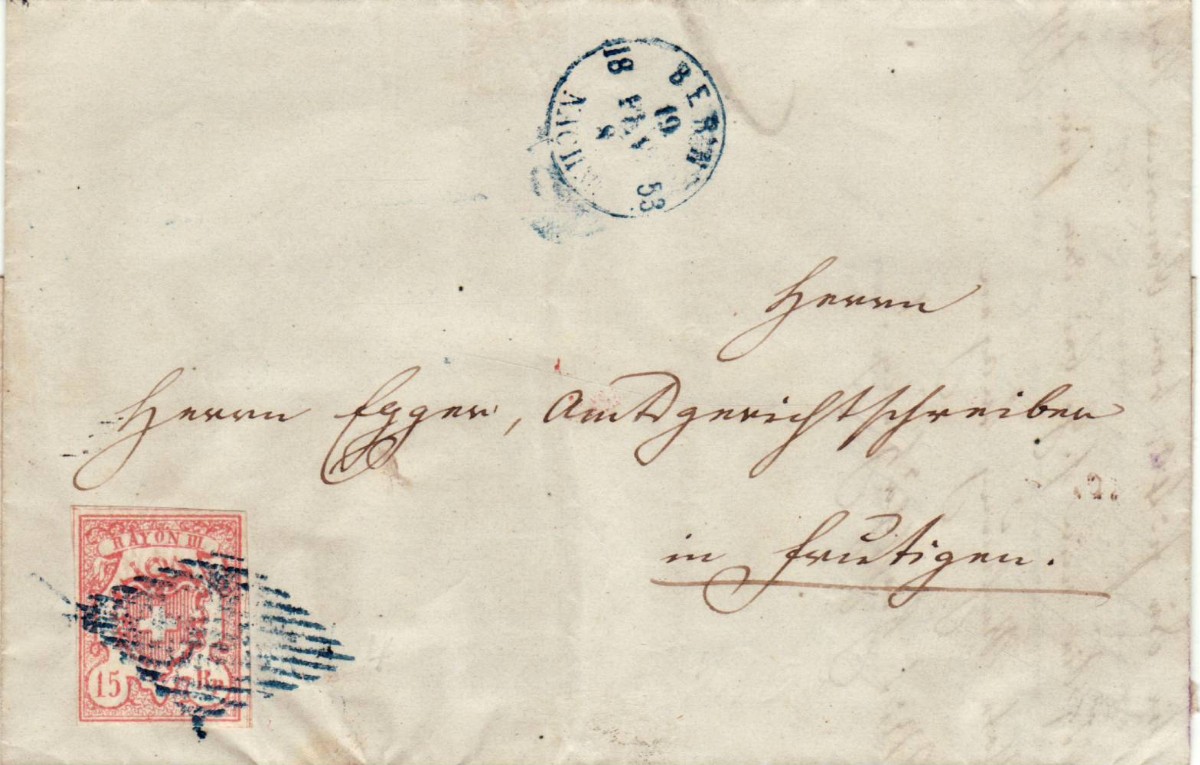 BERN
18 19 53
NACHM
Herrn
Herrn Egger, Amtsgerichtschreiber
in Frutigen.
RAYON III
15 Rp